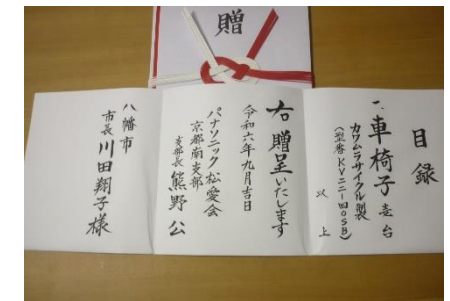 贈
目録
一、車椅子 壱台
カワムラサイクル製
(型番 KV二二-四〇SB)
以上
右贈呈いたします
令和六年九月吉日
パナソニック松愛会
京都南支部
支部長 熊野 公
八幡市
市長 川田翔子様